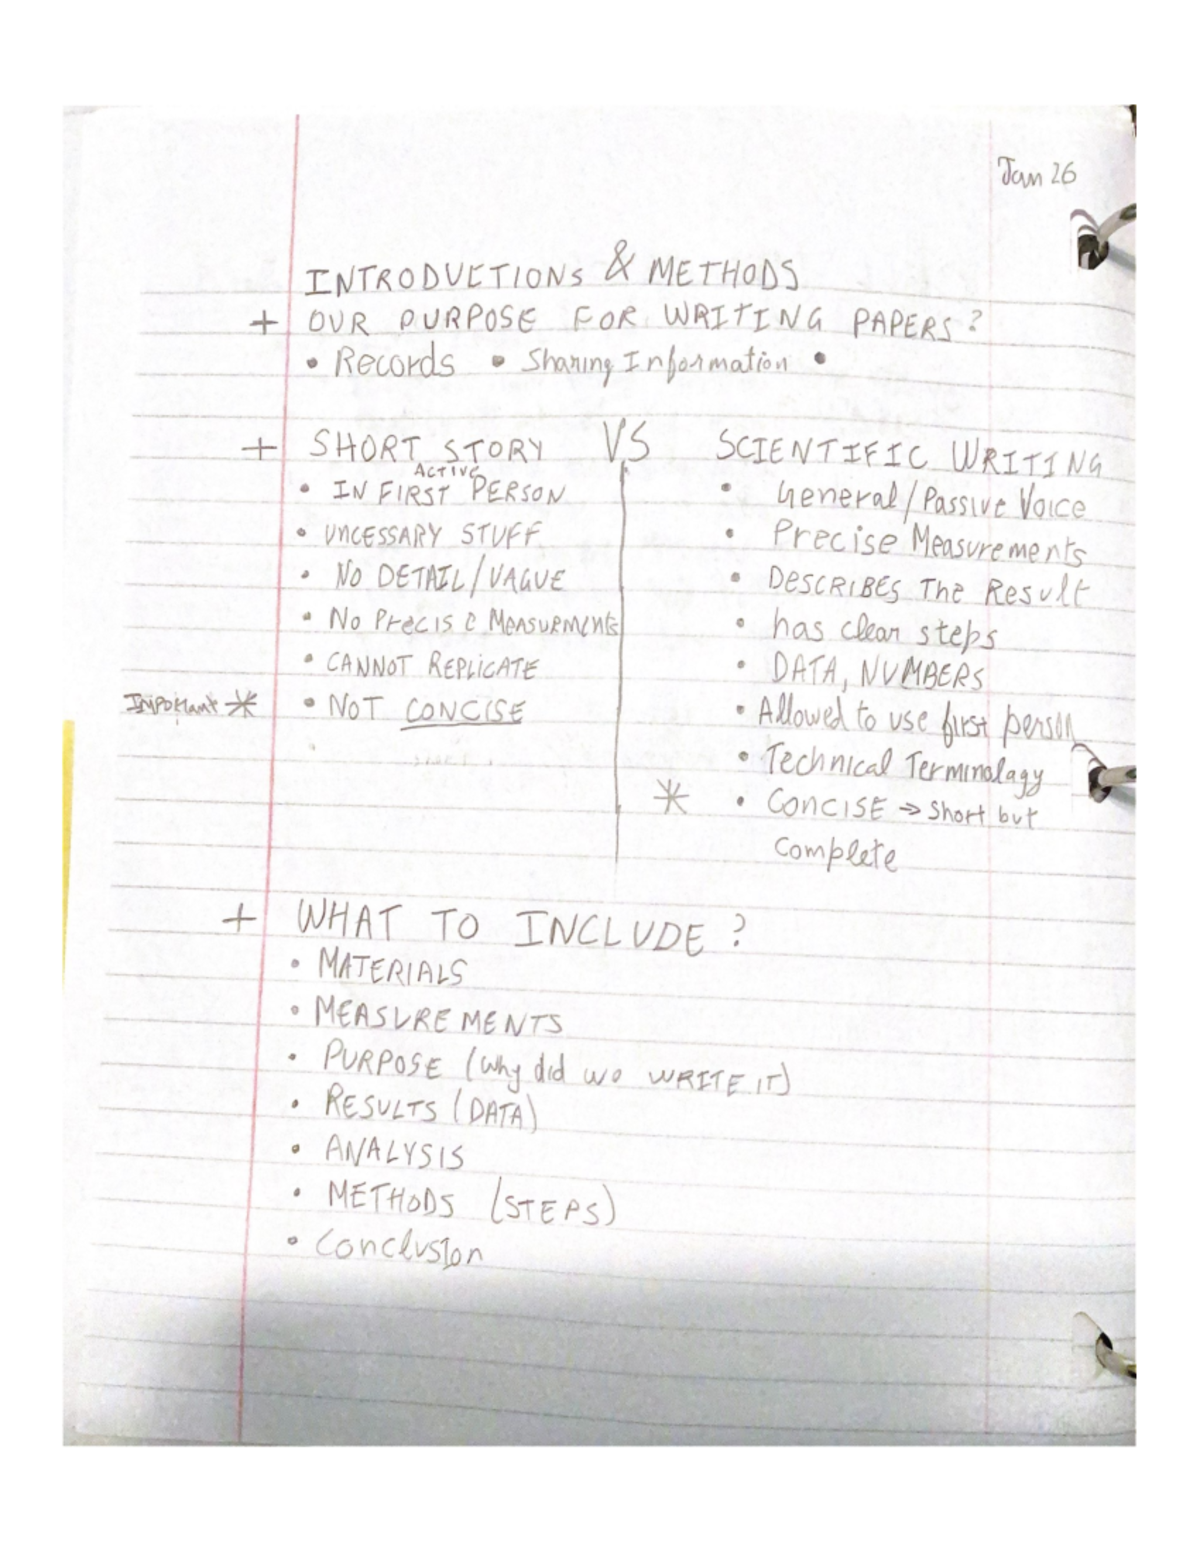 Jan 26
INTRODUCTIONS & METHODS
+ OUR PURPOSE FOR WRITING PAPERS?
• Records • Sharing Information •
+ SHORT STORY VS SCIENTIFIC WRITING
ACTIVE
• IN FIRST PERSON • General/Passive Voice
• UNCESSARY STUFF • Precise Measurements
• NO DETAIL/VAGUE • DESCRIBES The Result
• No Precise MEASURMENts • has clear steps
• CANNOT REPLICATE • DATA, NUMBERS
Important * • NOT CONCISE • Allowed to use first person
• Technical Terminolagy
* • CONCISE → Short but
Complete
+ WHAT TO INCLUDE?
• MATERIALS
• MEASUREMENTS
• PURPOSE (Why did we WRITE IT)
• RESULTS (DATA)
• ANALYSIS
• METHODS (STEPS)
• Conclusion